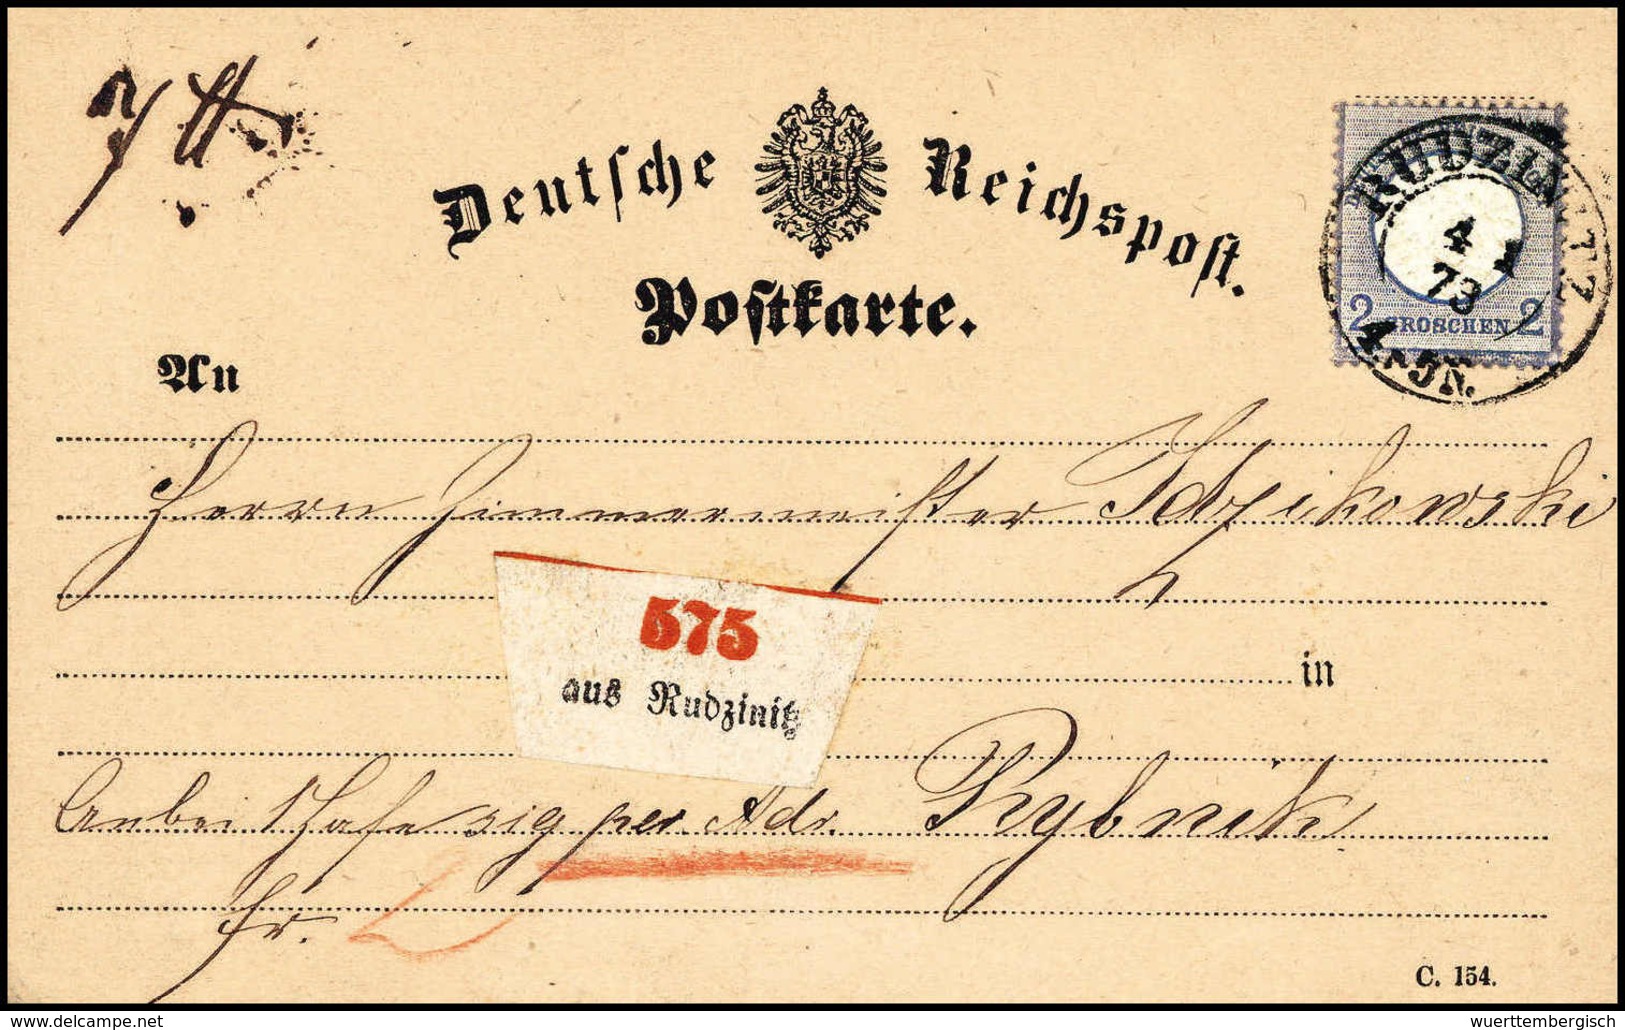 Deutsche Reichspost.
Postkarte.
RUDZINITZ
4 1
73
4-5N.
2 GROSCHEN 2
An
Herrn Zimmermeister Idzikowski
575
aus Rudzinitz
in
Anbei 1 per Adr. Rybnik
fr.
C. 154.
www.delcampe.net
wuerttembergisch